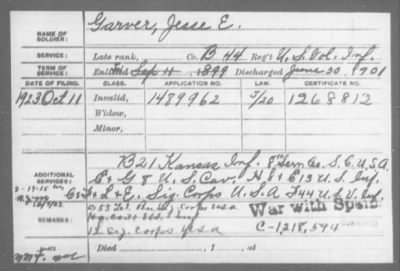 NAME OF SOLDIER: Garver, Jesse E.
SERVICE: Late rank, Co. B 44 Reg't U.S. Vol. Inf.
TERM OF SERVICE: Enlisted Sep 11 1899 Discharged June 30, 1901
DATE OF FILING. CLASS. APPLICATION NO. LAW. CERTIFICATE NO.
1923 Oct 11 Invalid, 1489962 1268812
Widow,
Minor,
ADDITIONAL SERVICES: B 21 Kansas Inf. Co. S.C. U.S.A.
G 8 U.S. Cav. H & E 13 U.S. Inf.
& L & E. Sig. Corps U.S.A. 44 U.S.V. Inf.
REMARKS: Sig Corps USA War with Spain
Inf C-1,218,594
Sig. Corps USA
Died , 1 , at